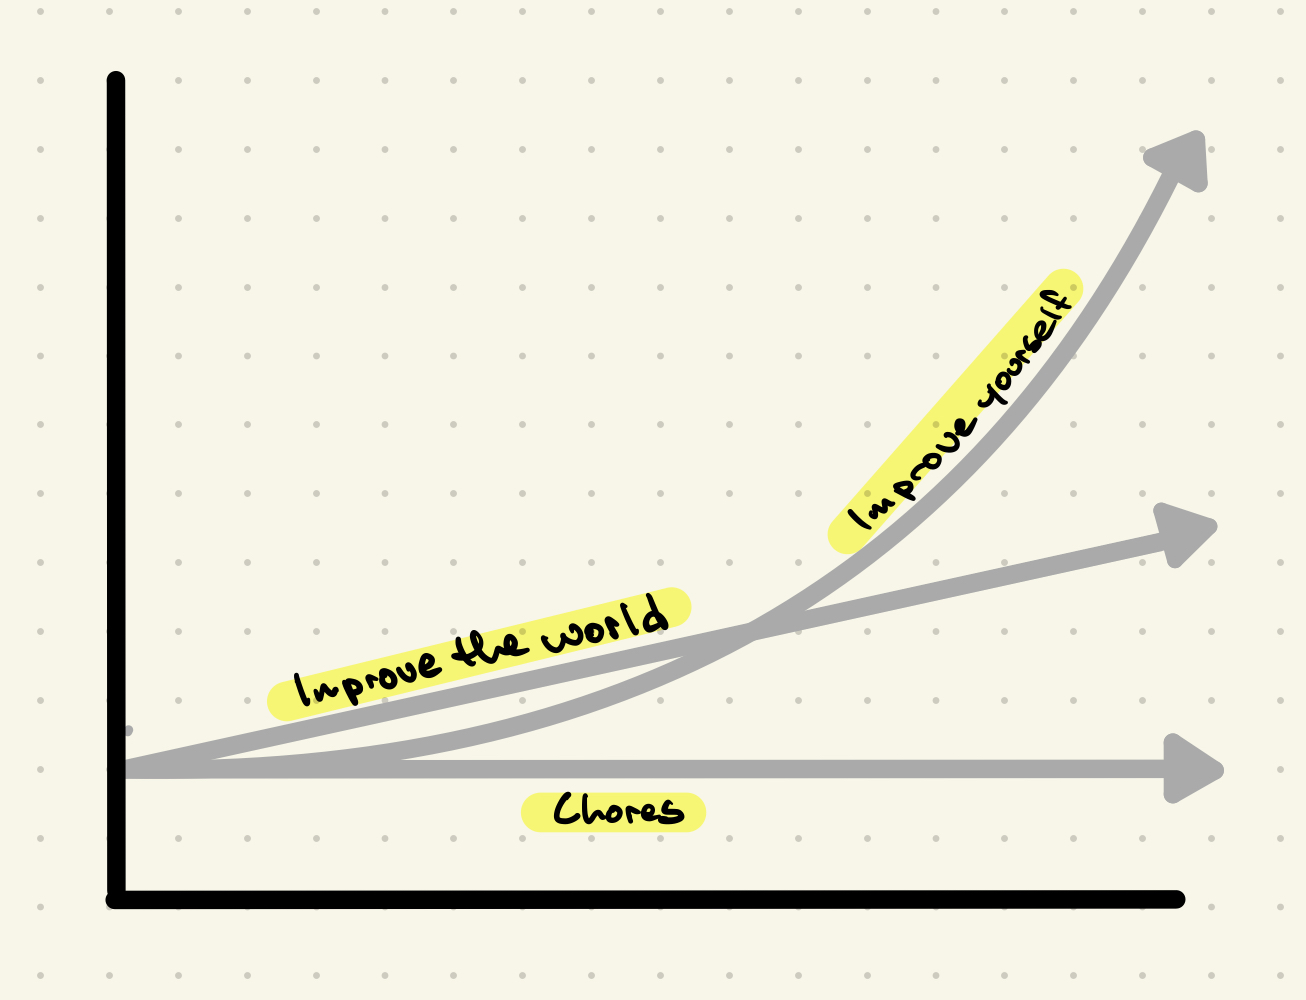 Improve yourself
Improve the world
Chores